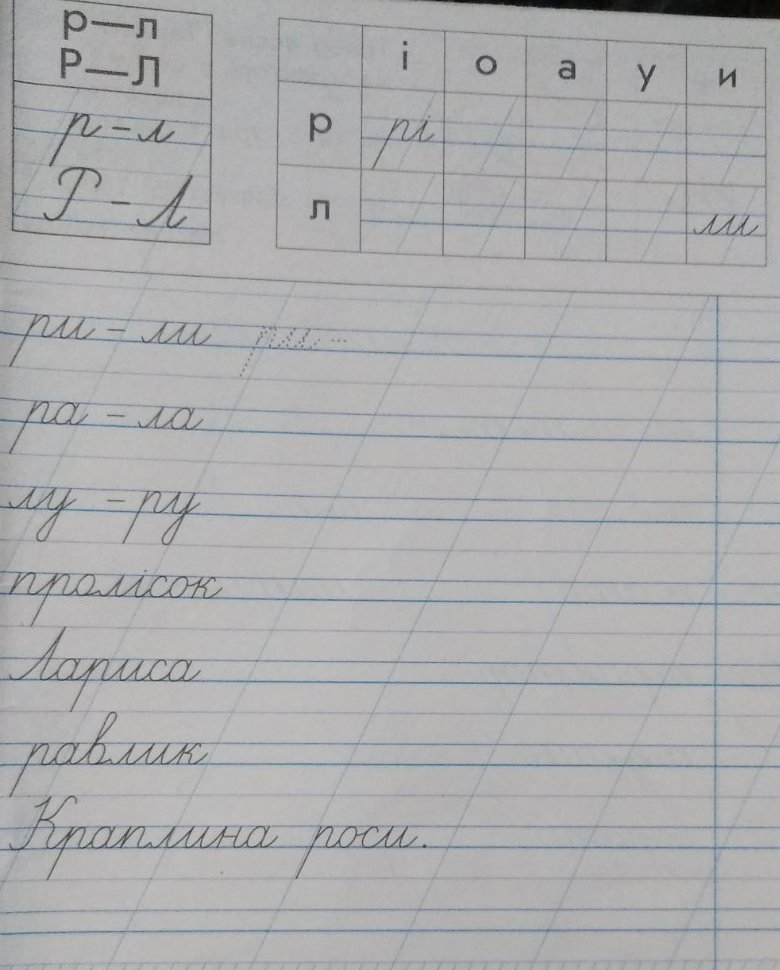 р—л
Р—Л
р – л
Р – Л
і о а у и
р рі
л ли
ри – ли ри –
ра – ла
лу – ру
пролісок
Лариса
равлик
Краплина роси.